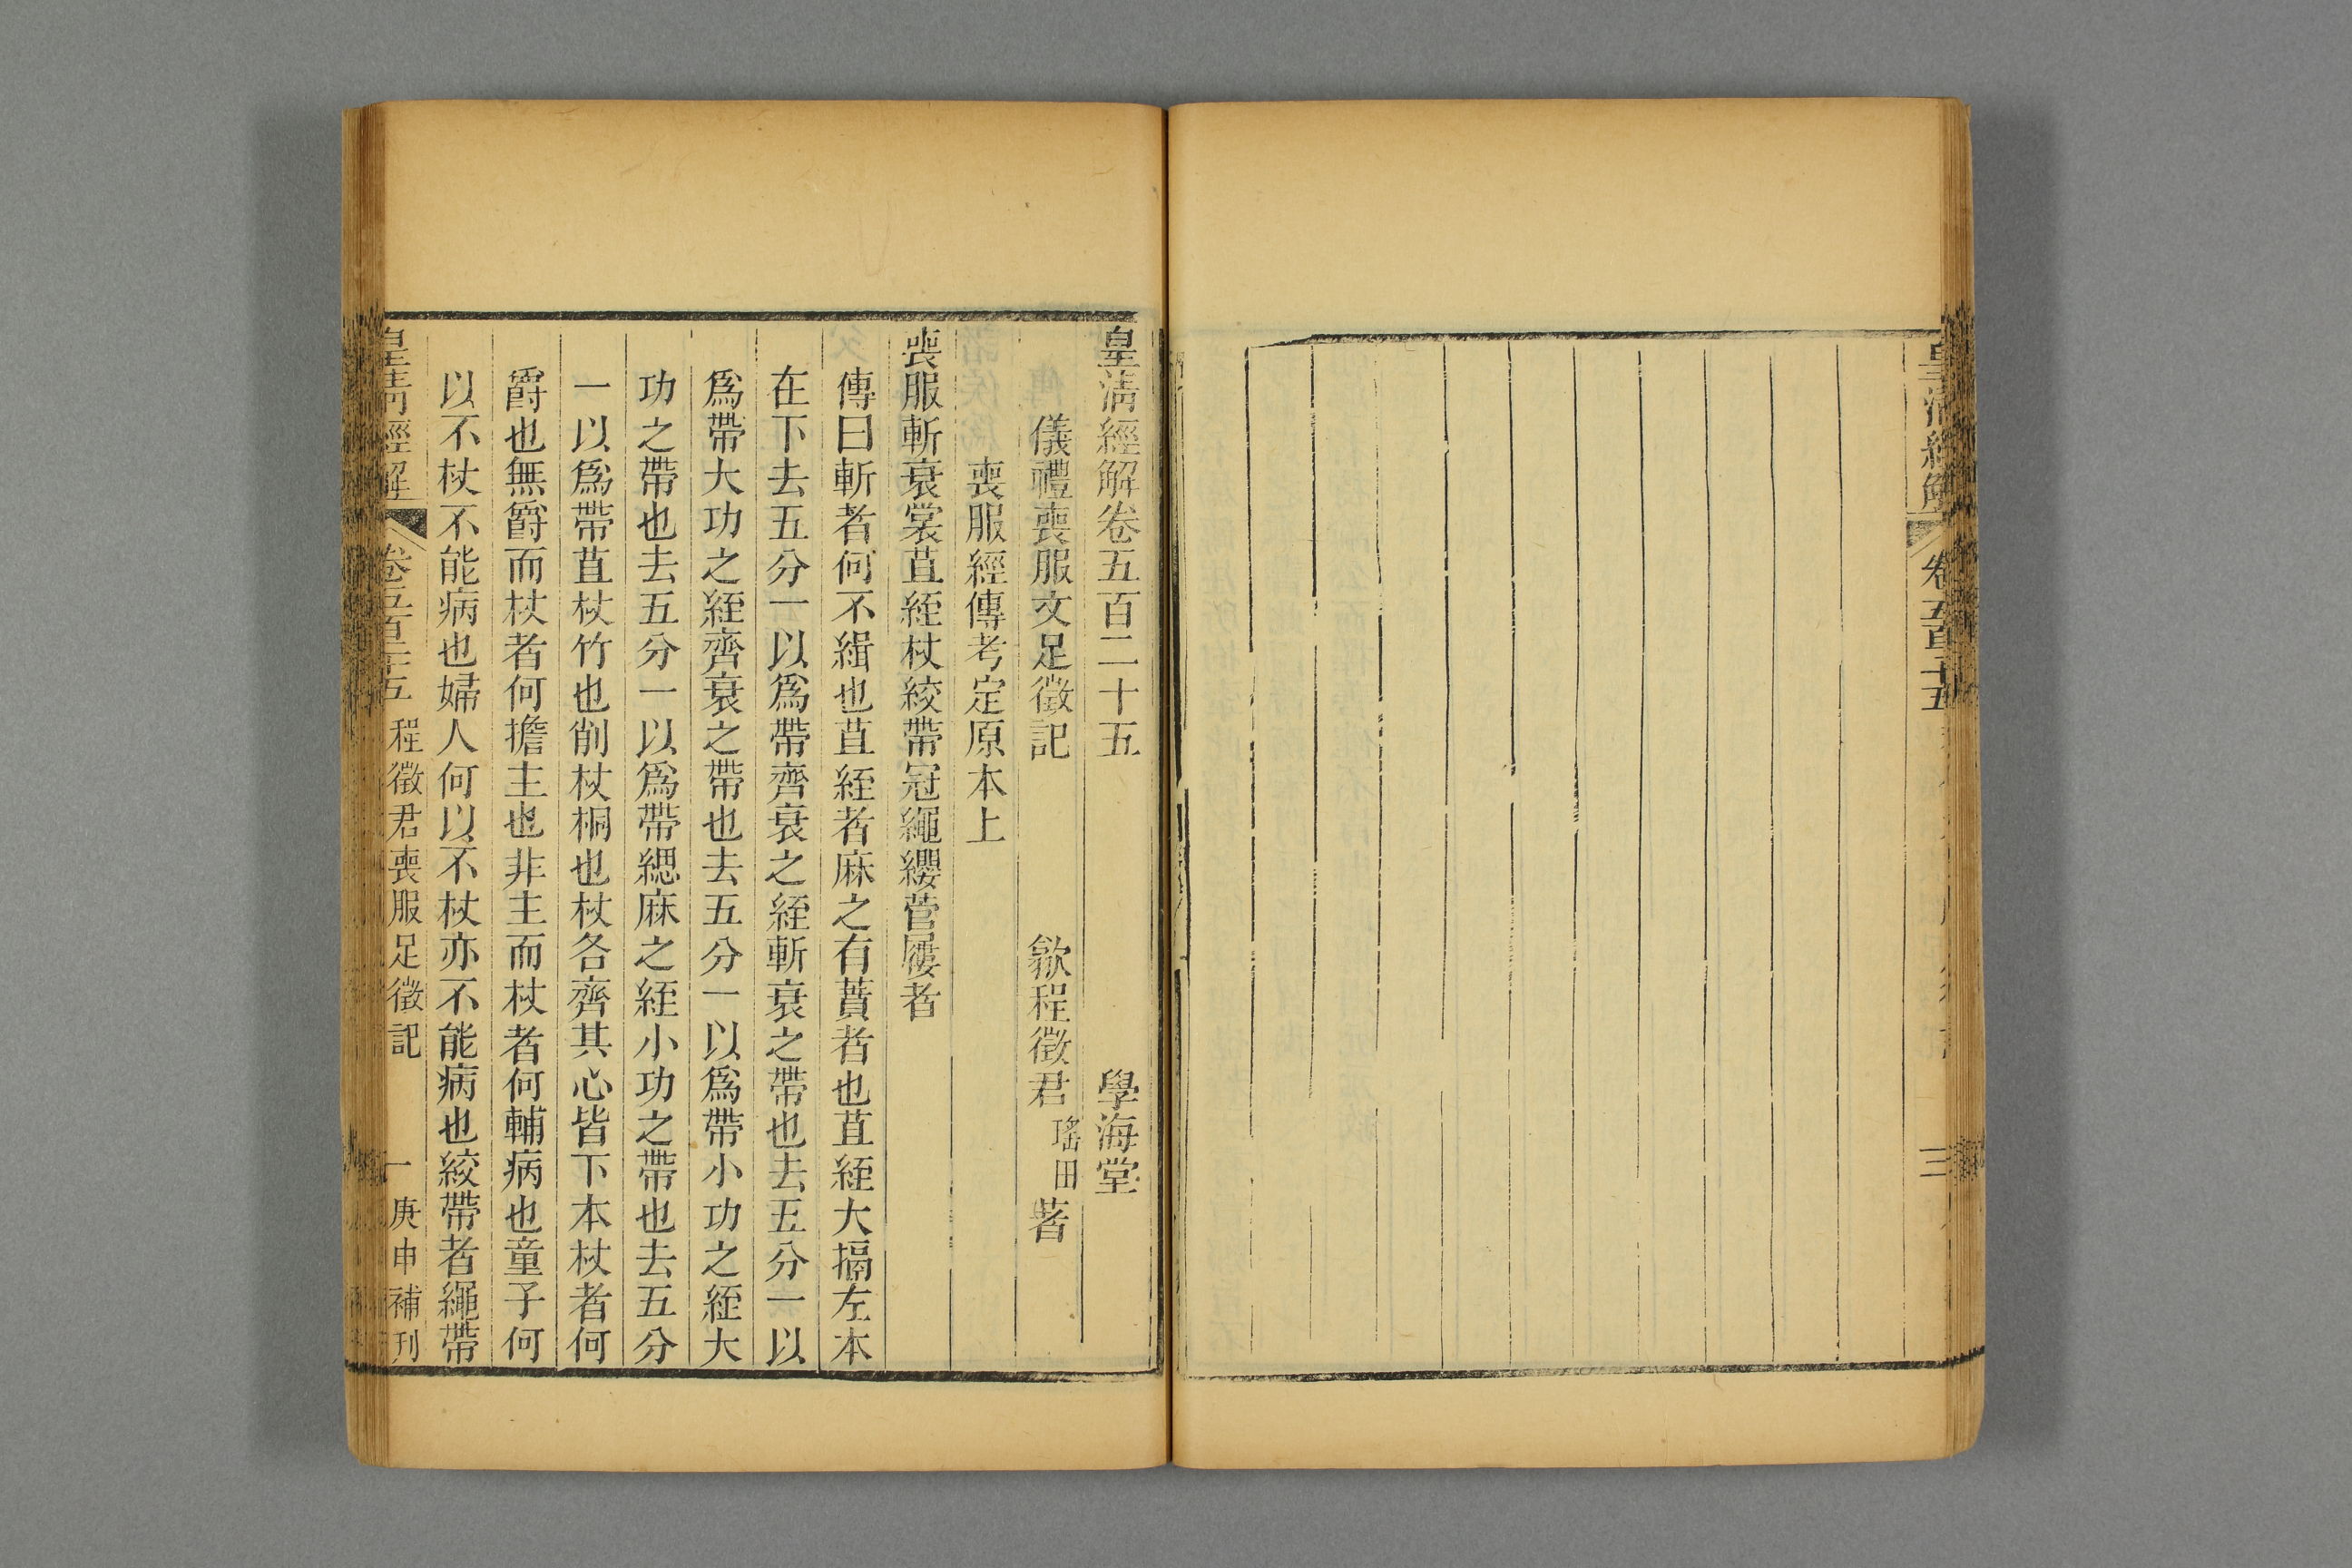 皇清經解
卷五百二十五
三
皇清經解卷五百二十五 學海堂
儀禮喪服文足徵記 歙程徵君瑤田著
喪服經傳考定原本上
喪服斬衰裳苴絰杖絞帶冠繩纓菅屨者
傳曰斬者何不緝也苴絰者麻之有蕡者也苴絰大搹左本
在下去五分一以爲帶齊衰之絰斬衰之帶也去五分一以
爲帶大功之絰齊衰之帶也去五分一以爲帶小功之絰大
功之帶也去五分一以爲帶緦麻之絰小功之帶也去五分
一以爲帶苴杖竹也削杖桐也杖各齊其心皆下本杖者何
爵也無爵而杖者何擔主也非主而杖者何輔病也童子何
以不杖不能病也婦人何以不杖亦不能病也絞帶者繩帶
皇清經解 卷五百二十五 程徵君喪服足徵記 一 庚申補刊